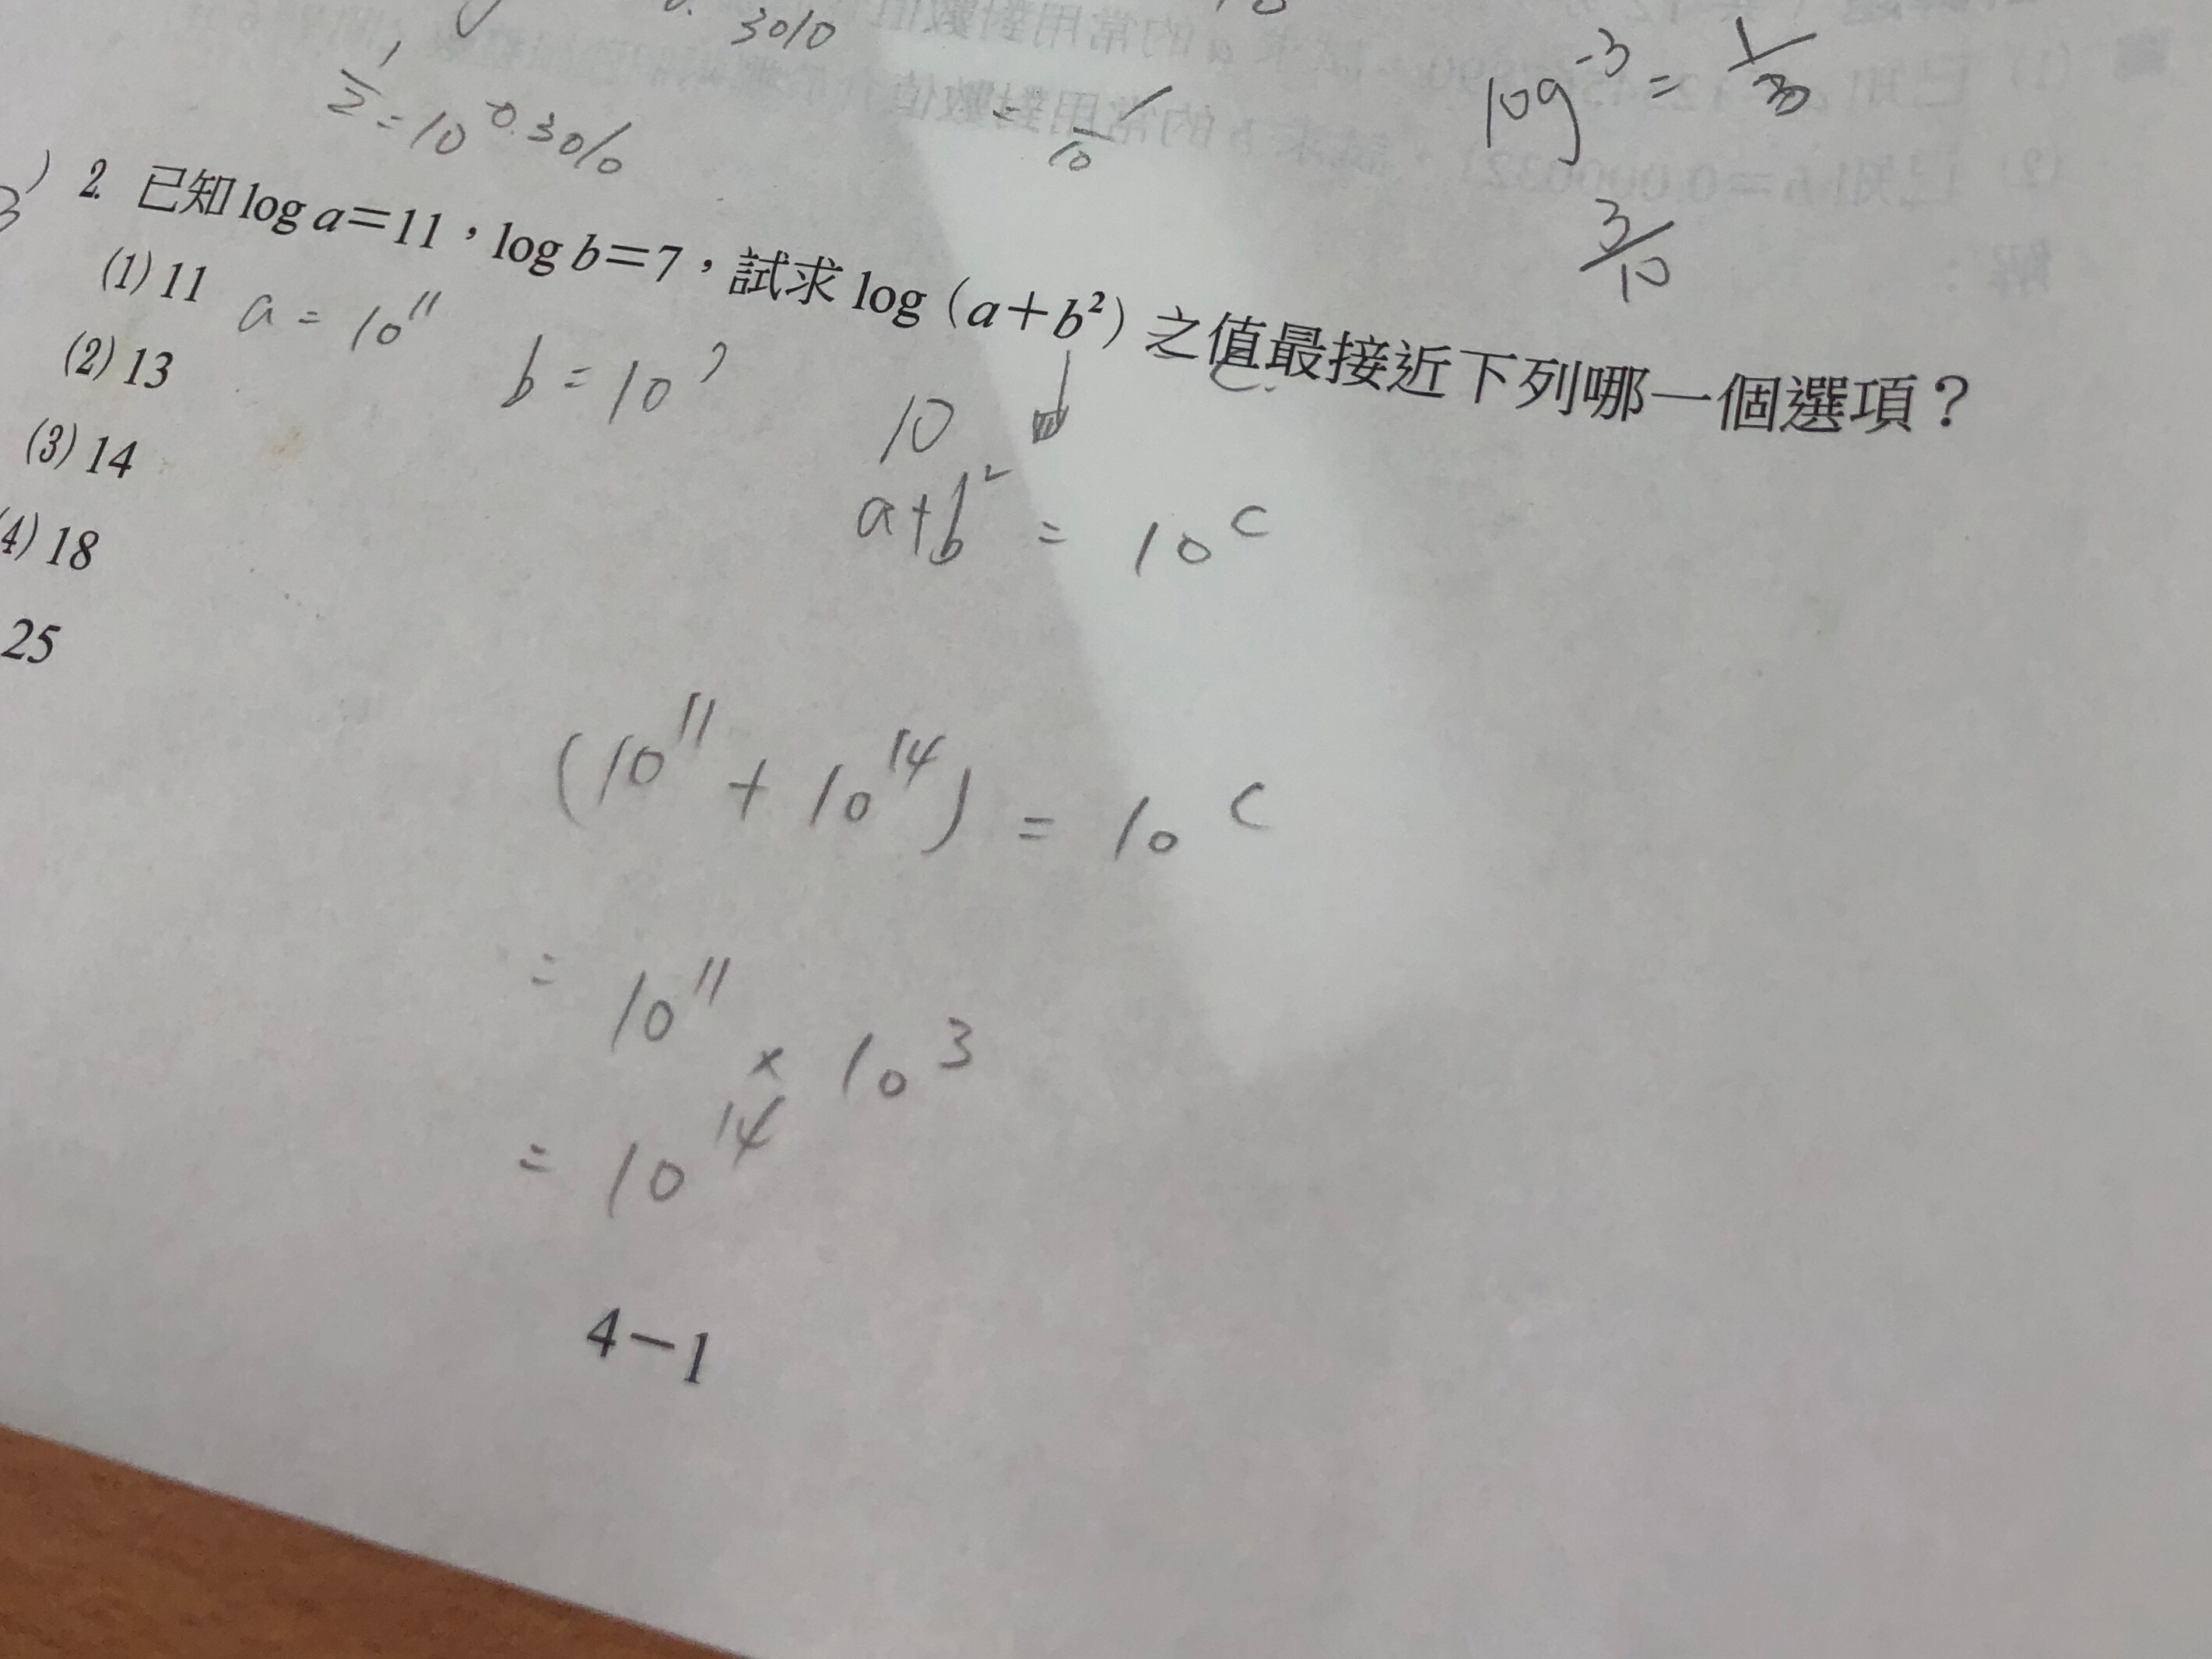 3010
1/2 = 10^-0.3010
= 1/10
log^-3 = 1/30
3/10
3) 2. 已知 log a=11，log b=7，試求 log (a+b²) 之值最接近下列哪一個選項？
(1) 11
a = 10^11 b = 10^7
(2) 13
10
(3) 14
a+b² = 10^c
(4) 18
25
(10^11 + 10^14) = 10^c
= 10^11 × 10^3
= 10^14
4－1